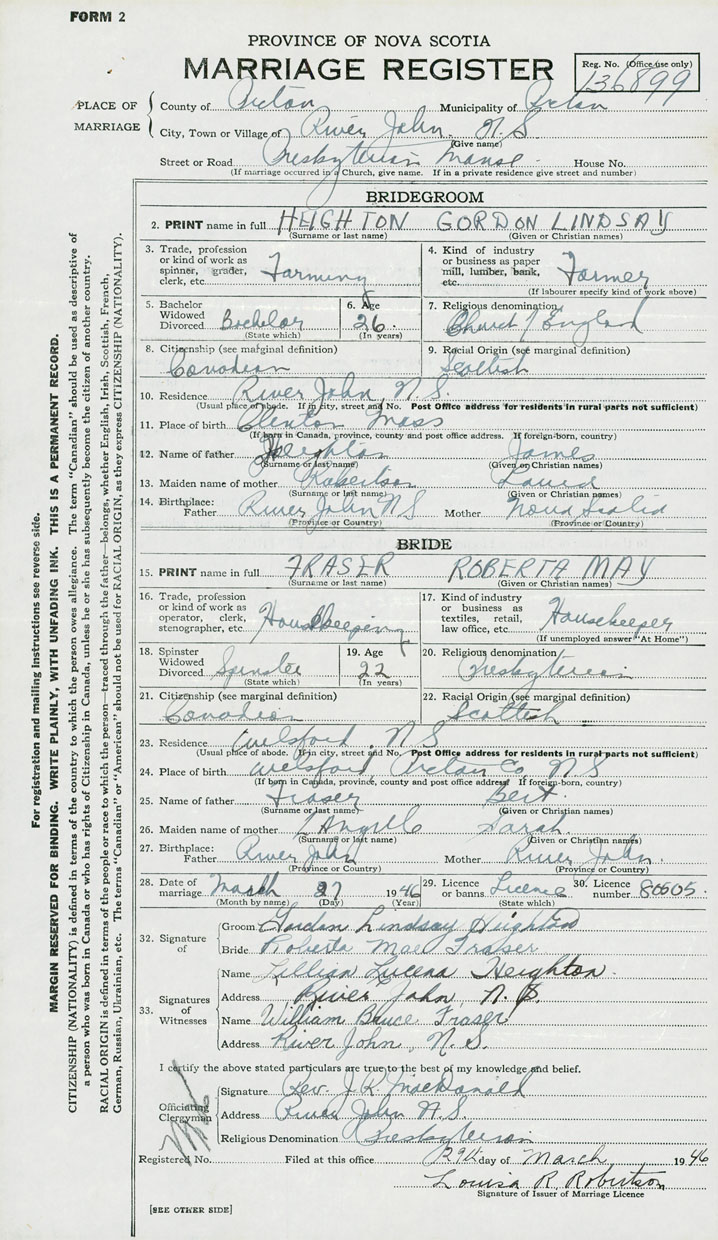 FORM 2
PROVINCE OF NOVA SCOTIA
MARRIAGE REGISTER
Reg. No. (Office use only)
136899
PLACE OF MARRIAGE
County of Pictou Municipality of Pictou
City, Town or Village of River John. N.S.
(Give name)
Street or Road Presbyterian Manse. House No.
(If marriage occurred in a Church, give name. If in a private residence give street and number)
BRIDEGROOM
2. PRINT name in full HEIGHTON GORDON LINDSAY
(Surname or last name) (Given or Christian names)
3. Trade, profession or kind of work as spinner, grader, clerk, etc. Farming
4. Kind of industry or business as paper mill, lumber, bank, etc. Farmer
(If labourer specify kind of work above)
5. Bachelor Widowed Divorced Bachelor
(State which)
6. Age 26.
(In years)
7. Religious denomination
Church of England
8. Citizenship (see marginal definition)
Canadian
9. Racial Origin (see marginal definition)
Scottish
10. Residence River John, N.S.
(Usual place of abode. If in city, street and No. Post Office address for residents in rural parts not sufficient)
11. Place of birth Mass
(If born in Canada, province, county and post office address. If foreign-born, country)
12. Name of father Heighton James
(Surname or last name) (Given or Christian names)
13. Maiden name of mother Robertson
(Surname or last name) (Given or Christian names)
14. Birthplace: Father River John NS Mother Nova Scotia
(Province or Country) (Province or Country)
BRIDE
15. PRINT name in full FRASER ROBERTA MAY
(Surname or last name) (Given or Christian names)
16. Trade, profession or kind of work as operator, clerk, stenographer, etc. Housekeeping
17. Kind of industry or business as textiles, retail, law office, etc. Housekeeper
(If unemployed answer "At Home")
18. Spinster Widowed Divorced Spinster
(State which)
19. Age 22
(In years)
20. Religious denomination
Presbyterian
21. Citizenship (see marginal definition)
Canadian
22. Racial Origin (see marginal definition)
Scottish
23. Residence Welsford, N.S
(Usual place of abode. If in city, street and No. Post Office address for residents in rural parts not sufficient)
24. Place of birth Welsford, Pictou Co N S
(If born in Canada, province, county and post office address. If foreign-born, country)
25. Name of father Fraser Bert.
(Surname or last name) (Given or Christian names)
26. Maiden name of mother Sarah.
(Surname or last name) (Given or Christian names)
27. Birthplace: Father River John Mother River John.
(Province or Country) (Province or Country)
28. Date of marriage March 27 1946
(Month by name) (Day) (Year)
29. Licence or banns Licence
(State which)
30. Licence number 80605.
32. Signature of
Groom Gordon Lindsay Heighton
Bride Roberta Mae Fraser
33. Signatures of Witnesses
Name Lillian Lucena Heighton.
Address River John, N.S.
Name William Bruce Fraser
Address River John, N.S.
I certify the above stated particulars are true to the best of my knowledge and belief.
Officiating Clergyman
Signature Rev. J. K. MacDonald
Address River John N.S.
Religious Denomination Presbyterian
Registered No. Filed at this office 29th day of March 1946
Louisa R. Robertson
Signature of Issuer of Marriage Licence
[SEE OTHER SIDE]
For registration and mailing instructions see reverse side.
MARGIN RESERVED FOR BINDING. WRITE PLAINLY, WITH UNFADING INK. THIS IS A PERMANENT RECORD.
CITIZENSHIP (NATIONALITY) is defined in terms of the country to which the person owes allegiance. The term "Canadian" should be used as descriptive of
a person who was born in Canada or who has rights of Citizenship in Canada, unless he or she has subsequently become the citizen of another country.
RACIAL ORIGIN is defined in terms of the people or race to which the person—traced through the father—belongs, whether English, Irish, Scottish, French,
German, Russian, Ukrainian, etc. The terms "Canadian" or "American" should not be used for RACIAL ORIGIN, as they express CITIZENSHIP (NATIONALITY).